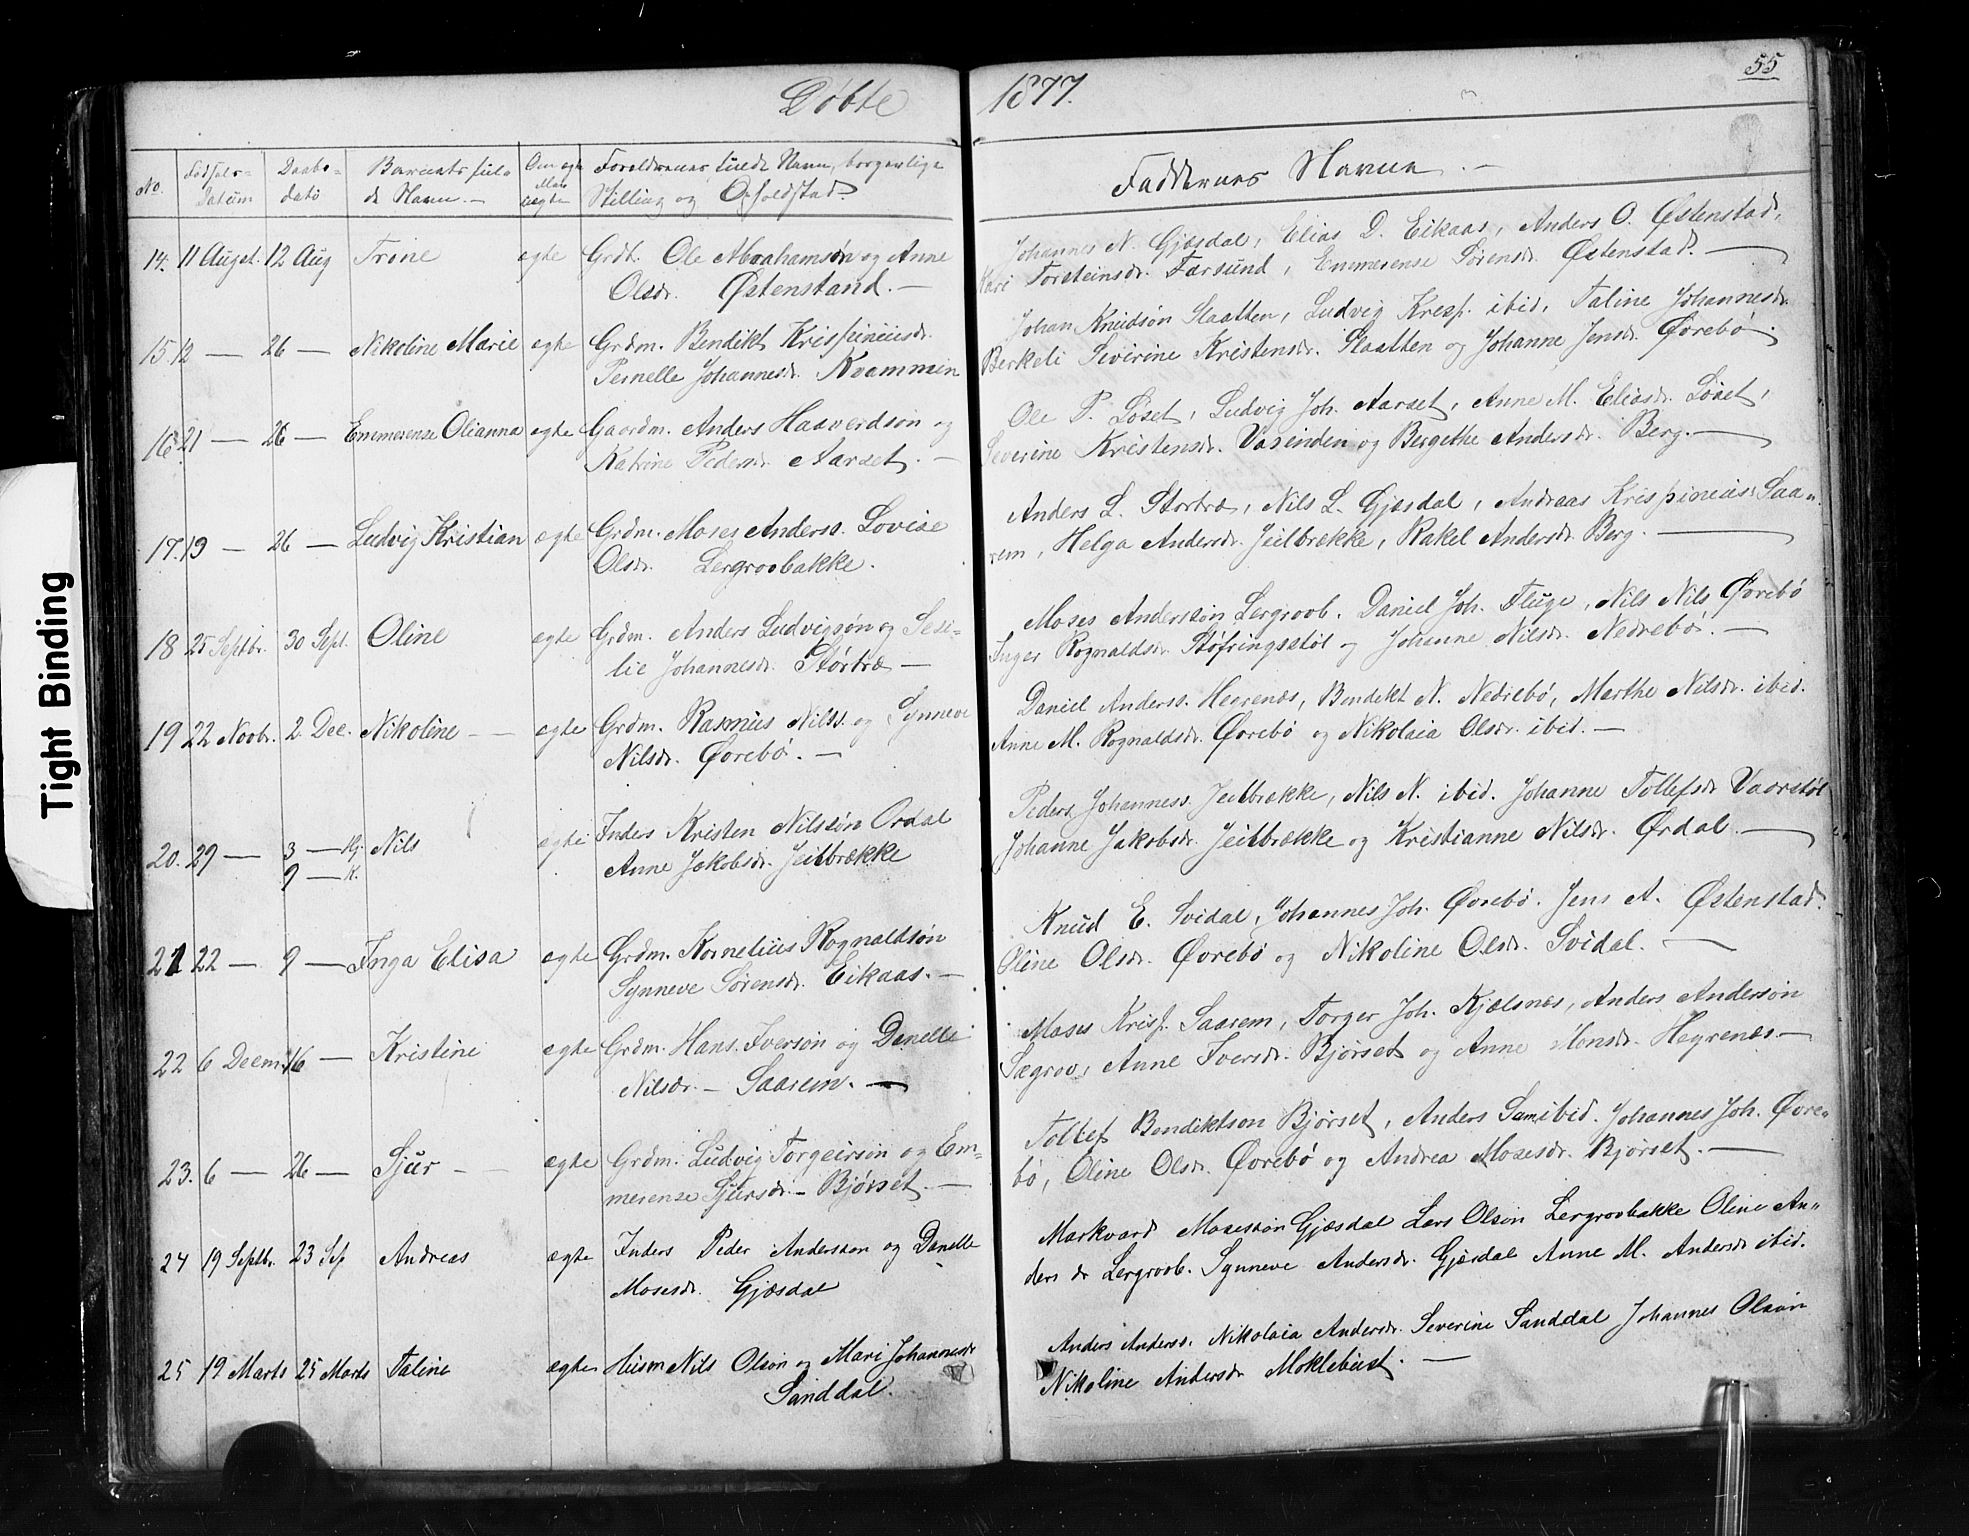 Døbte 1877. 55
No. Fødsels- Datum Daabs- dato Barnets fuldе Navn. — Om ægte eller uægte Forældrenes fulde Navn, borgerlige Stilling og Opholdsted. Faddernes Navne. —
14. 11 Augst. 12 Aug Trine egte Grdb. Ole Abrahamsøn og Anne
Olsdr. Østenstand. —
Johannes N. Gjæsdal, Elias D. Eikaas, Anders O. Østenstad,
Kari Torsteinsdr. Farsund, Emmerense Sørensdr. Østenstad. —
15. 12 — 26 — Nikoline Marie egte Grdm. Bendikt Krispiniusdr.
Pernelle Johannesdr. Kvammen
Johan Knudsøn Slaatten, Ludvig Kresp. ibid, Taline Johannesdr.
Berkeli Severine Kristensdr. Slaatten og Johanne Jensdr. Ørebø.
16. 21 — 26 — Emmerense Olianna egte Gaardm. Anders Haaverdsøn og
Katrine Pedersdr. Aarset. —
Ole P. Løset, Ludvig Joh. Aarset, Anne M. Eliasdr. Løset,
Severine Kristensdr. Vasenden og Bergethe Andersdr. Berg. —
17. 19 — 26 — Ludvig Kristian ægte Grdm. Moses Anderss. Lovise
Olsdr. Lergrovbakke.
Anders L. Stortræ, Nils L. Gjæsdal, Andreas Krispinius Saa-
rem, Helga Andersdr. Jeilbrekke, Rakel Andersdr. Berg. —
18 25 Septbr. 30 Sept. Oline ægte Grdm. Anders Ludvigsøn og Sesi-
lie Johannesdr. Stortræ —
Moses Andersøn Lergroob. Daniel Joh. Fluge, Nils Nils. Ørebø
Inger Rognaldsdr. Støfringsstøl og Johanne Nilsdr. Nedrebø. —
19 22 Novbr. 2. Dec. Nikoline — ægte Grdm. Rasmus Nilss. og Synneve
Nilsdr. Ørebø. —
Daniel Anderss. Hegrenæs, Bendikt N. Nedrebø, Marthe Nilsdr. ibid.
Anne M. Rognaldsdr. Ørebø og Nikolaia Olsdr. ibid. —
20. 29 — 3 — Hj. Nils egte Inders Kristen Nilssøn Ordal
9 — K.
Anne Jakobsdr. Jeilbrække
Peders Johanness. Jeilbrække, Nils N. ibid. Johanne Tollefsdr. Vaarstøl
Johanne Jakobsdr. Jeilbrække og Kristianne Nilsdr. Ørdal. —
21 22 — 9 — Inga Elisa ægte Grdm. Kornelius Rognaldsøn
Synneve Sørensdr. Eikaas. —
Knud E. Svidal, Johannes Joh. Ørebø. Jens A. Østenstad.
Oline Olsdr. Ørebø og Nikoline Olsdr. Svidal. —
22 6 Decm. 16 — Kristine ægte Grdm. Hans. Iversøn og Danelle
Nilsdr. — Saarem. —
Moses Krisp. Saarem, Torger Joh. Kjælsnes, Anders Andersøn
Sægrov, Anne Iversdr. Bjørset og Anne Monsdr. Hegrenæs —
23. 6 — 26 — Sjur — ægte Grdm. Ludvig Torgeirsøn og Em-
merense Sjursdr. — Bjørset. —
Tollef Bendiktson Bjørset, Anders Sam. ibid. Johannes Joh. Øre-
bø, Oline Olsdr. Ørebø og Andrea Mosesdr. Bjørset. —
24 19 Septbr. 23 Sep Andreas ægte Inders Peder Andersøn og Danelle
Mosesdr. Gjæsdal
Markvard Mosessøn Gjæsdal Lars Olsøn Lergrovbakke Oline An-
ders dr Lergroob. Synneve Andersdr. Gjæsdal Anne M. Andersdr ibid.
25 19 Marts 25 Marts Taline ægte Husm Nils Olsøn og Mari Johannesdr
Sanddal.
Anders Anderss. Nikolaia Andersdr. Severine Sanddal Johannes Olsøn
Nikoline Andersdr Moklebust. —
Tight Binding